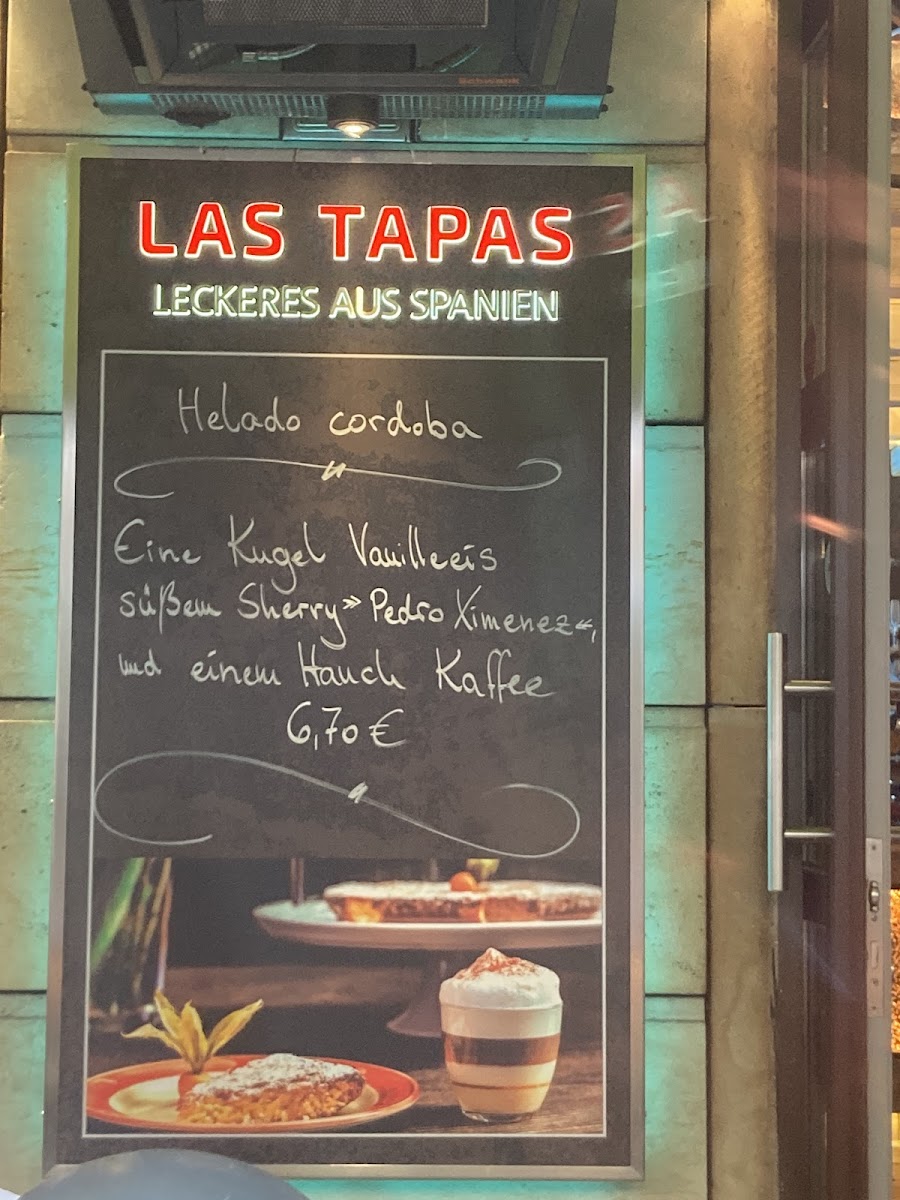 LAS TAPAS
LECKERES AUS SPANIEN
Helado cordoba
Eine Kugel Vanilleeis
süßem Sherry »Pedro Ximenez«,
und einem Hauch Kaffee
6,70 €